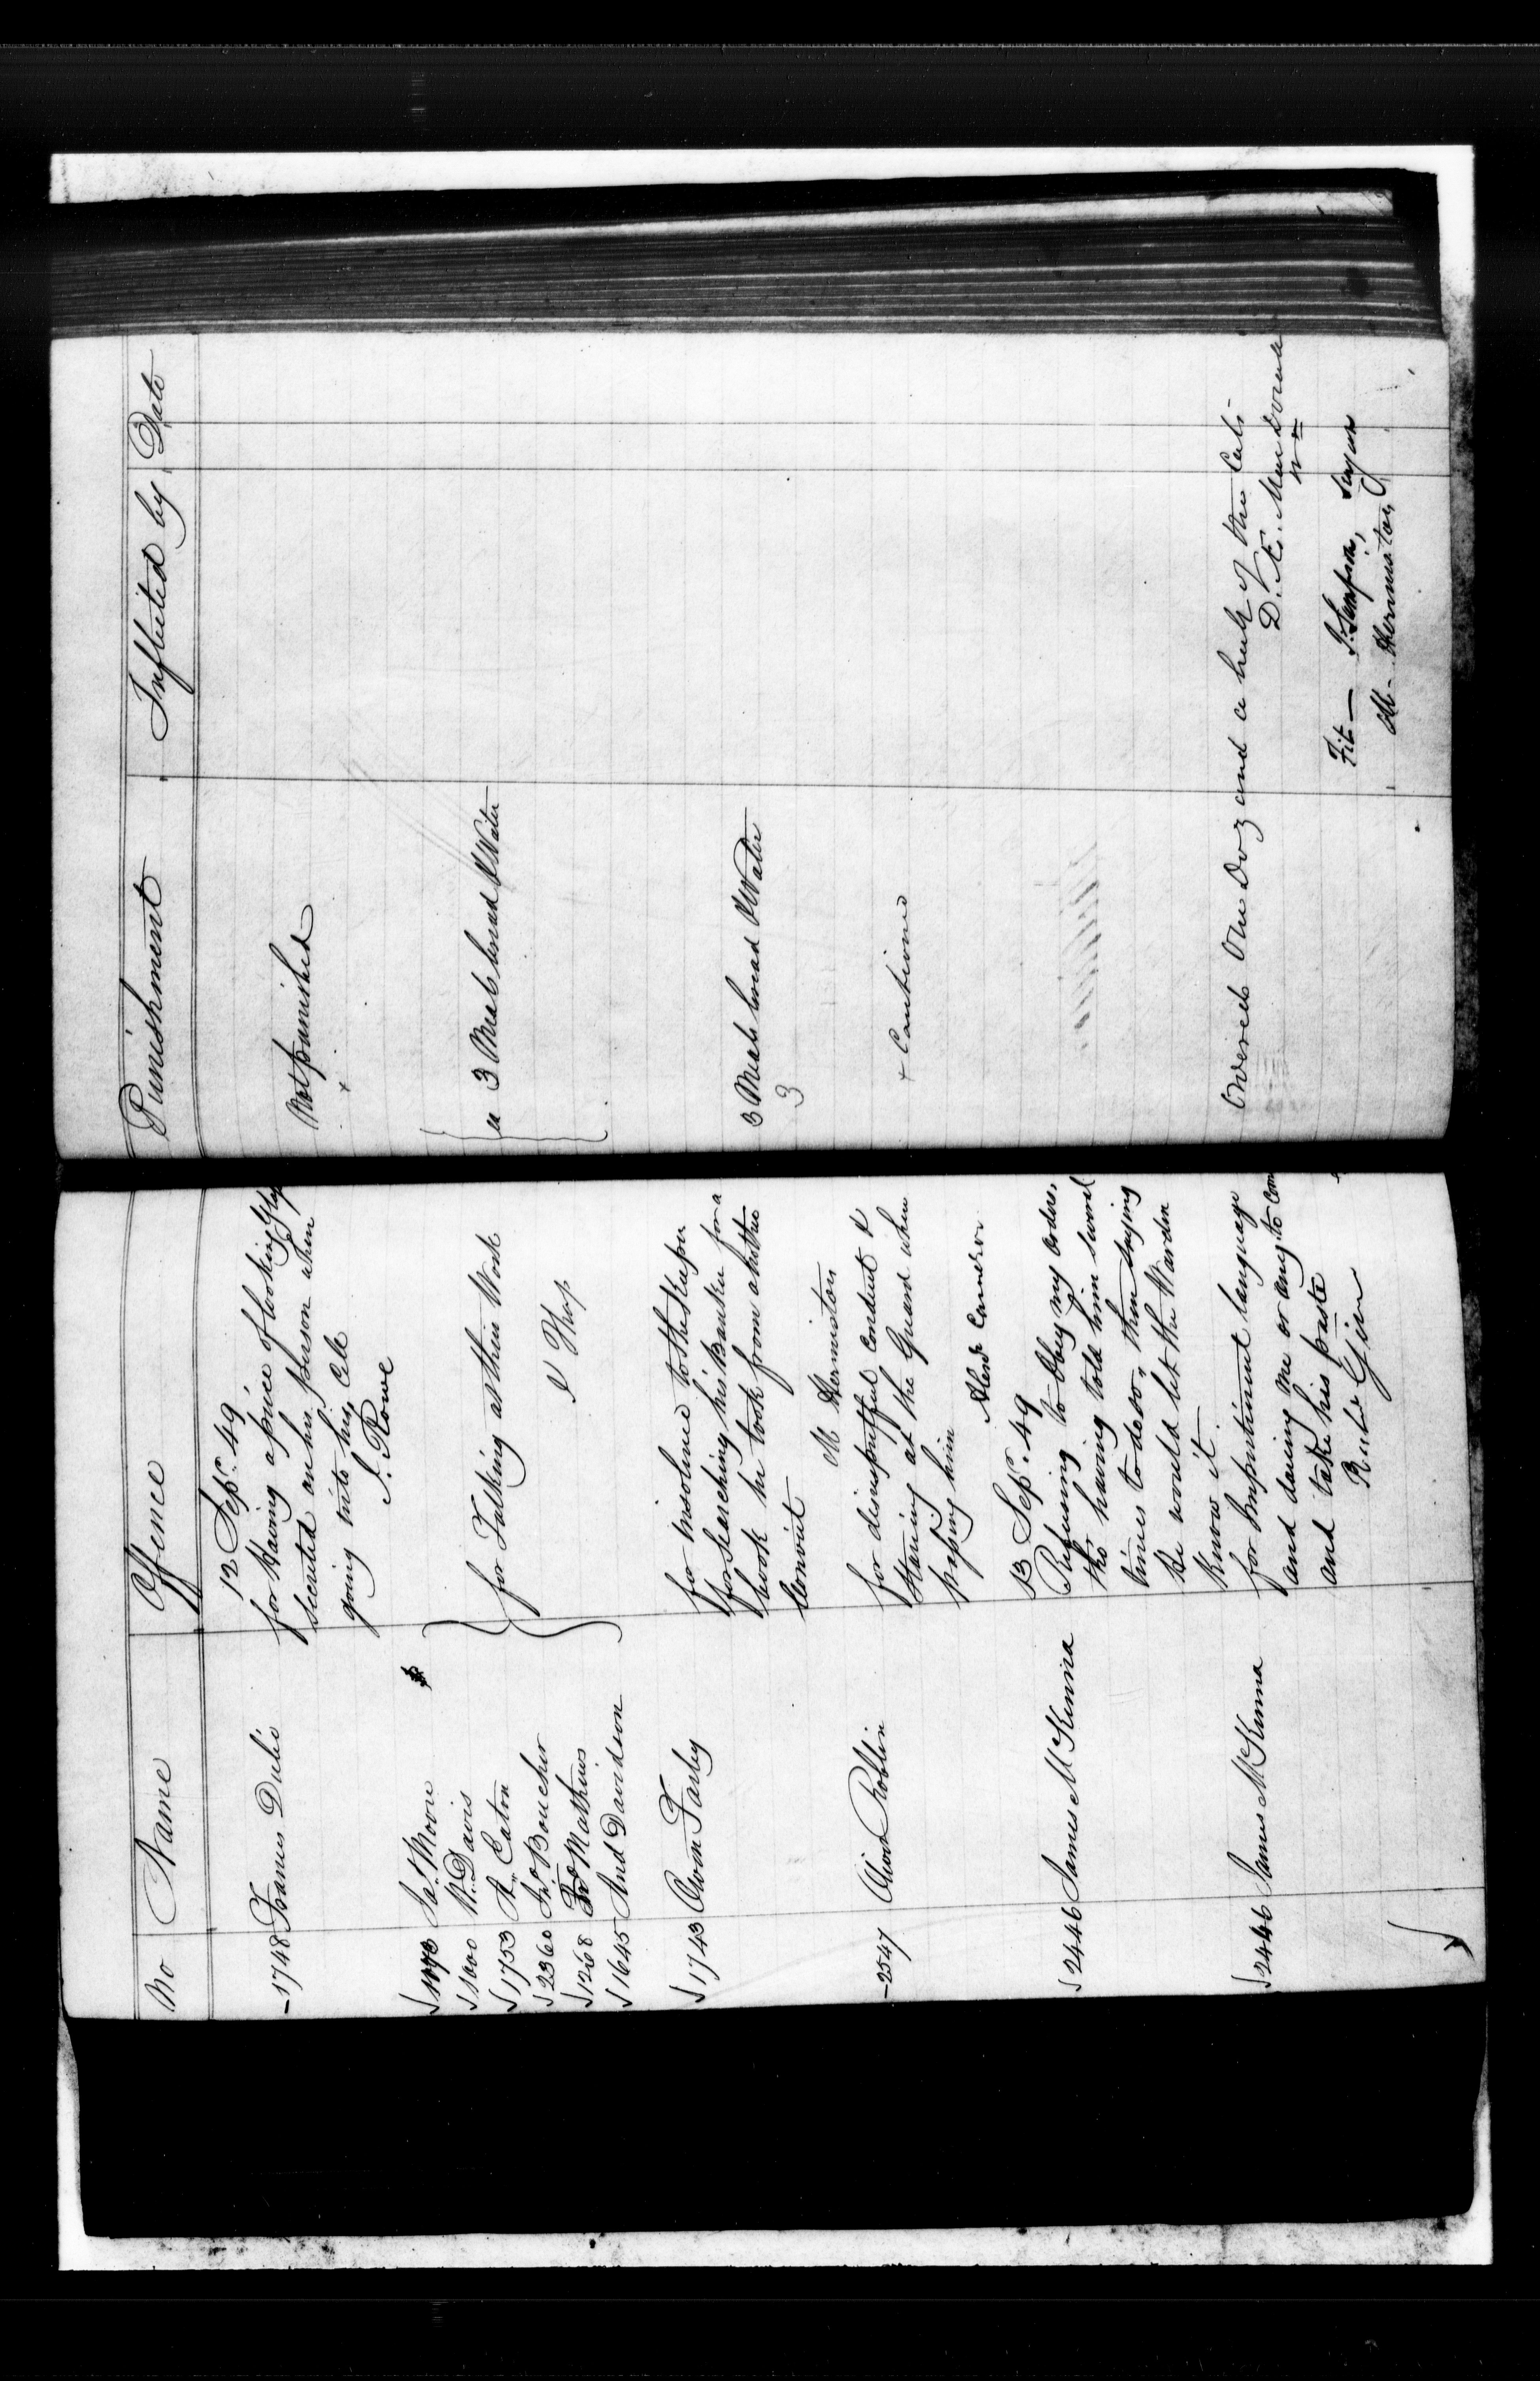 No Name Offence Punishment Inflicted by Date
12 Sept. 49
1748 Francis Dulie for having a piece of looking Glass
secreted on his person when Not punished
going into his Cell
J. Rowe
Ja.s Moore
1600 W. Davis
1753 A. Eaton for Talking at their Work ea 3 Meals bread & Water
2360 Jno Boucher
1268 Mathews
1645 And Davidson
1743 Owen Farley for insolence to the Keeper
for searching his Bunker for a
book he took from another 3 Meals bread & Water
Convict 3
M Hermiston
2547 Roblin for disrespectful conduct & + Cautioned
Staring at the Guard when
passing him
Alexr Cameron
13 Sept. 49
2446 James McKenna Refusing to Obey my orders,
tho having told him several
times to do so, then saying
he would let the Warden
Know it.
2446 James McKenna for Impertinent language Ordered One Doz and a half of the Cats
and daring me or any to come D. Æ. MacDonell
and take his paste Wn
Fit — J. Sampson, Surgeon
M. Hermiston